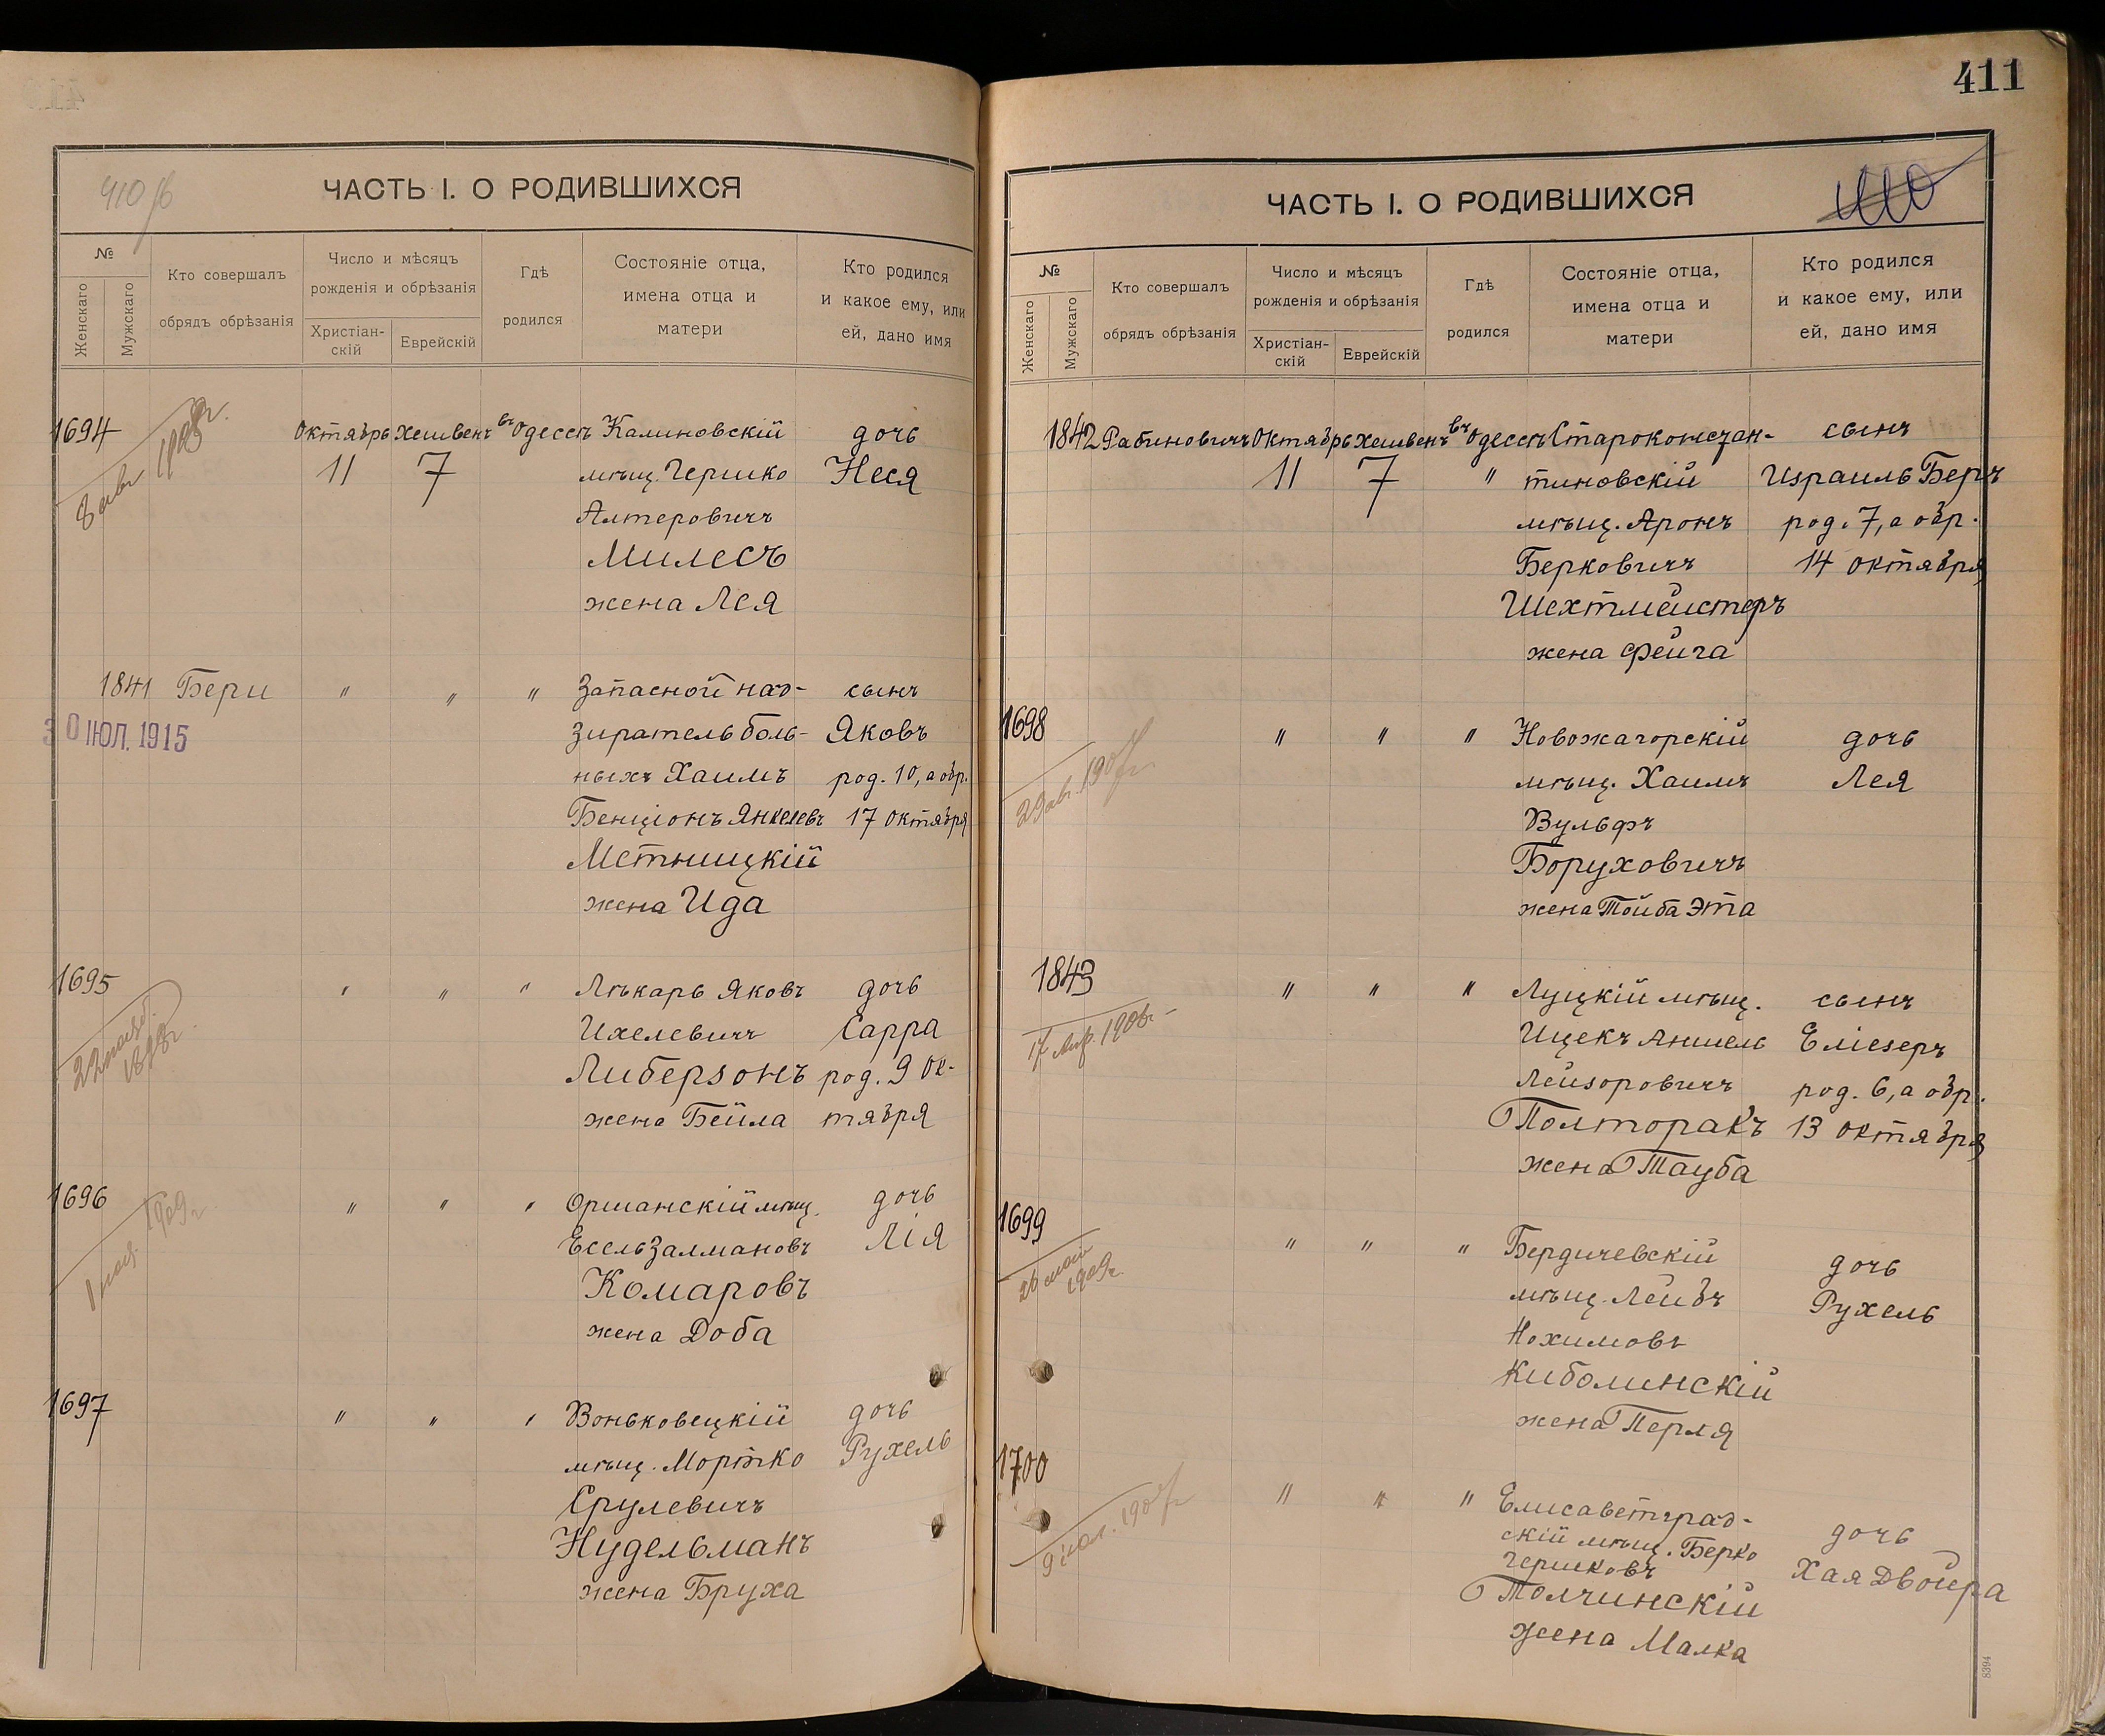 410/б
ЧАСТЬ I. О РОДИВШИХСЯ
№
Женскаго
Мужскаго
Кто совершалъ
обрядъ обрѣзанія
Число и мѣсяцъ
рожденія и обрѣзанія
Христіан-
скій
Еврейскій
Гдѣ
родился
Состояніе отца,
имена отца и
матери
Кто родился
и какое ему, или
ей, дано имя
1694 Октябрь Хешвенъ въ Одессѣ Калиновскій дочь
11 7 мѣщ. Гершко Неся
Алтеровичъ
Милесъ
жена Лея
1841 Бери " " " Запасной над- сынъ
30 ІЮЛ. 1915
зиратель боль- Яковъ
ныхъ Хаимъ род. 10, а обр.
Бенціонъ Янкелевъ 17 октября
Метницкій
жена Ида
1695 " " " Лѣкарь Яковъ дочь
Ихелевичъ Сарра
Либерзонъ род. 9 Ок-
жена Бейла тября
1696 " " " Оршанскій мѣщ. дочь
1909 г.
Есель Залмановъ Лія
Комаровъ
жена Доба
1697 " " " Воньковецкій дочь
мѣщ. Мортко Рухель
Срулевичъ
Нудельманъ
жена Бруха
411
ЧАСТЬ I. О РОДИВШИХСЯ
410
№
Женскаго
Мужскаго
Кто совершалъ
обрядъ обрѣзанія
Число и мѣсяцъ
рожденія и обрѣзанія
Христіан-
скій
Еврейскій
Гдѣ
родился
Состояніе отца,
имена отца и
матери
Кто родился
и какое ему, или
ей, дано имя
1842 Рабиновичъ Октябрь Хешвенъ въ Одессѣ Староконстан- сынъ
11 7 " тиновскій Израиль Беръ
мѣщ. Аронъ род. 7, а обр.
Берковичъ 14 октября
Шехтмейстеръ
жена Фейга
1698 " " " Новожагорскій дочь
мѣщ. Хаимъ Лея
Вульфъ
Боруховичъ
жена Тойба Эта
1843 " " " Луцкій мѣщ. сынъ
17 Апр. 1906г.
Ицекъ Аншель Еліезеръ
Лейзоровичъ род. 6, а обр.
Полторакъ 13 октября
жена Тауба
1699 " " " Бердичевскій дочь
26 мая
1909г.
мѣщ. Лейбъ Рухель
Нохимовъ
Киболинскій
жена Перля
1700 " " " Елисаветград-
скій мѣщ. Берко дочь
Гершковъ Хая Двойра
Толчинскій
жена Малка
8394